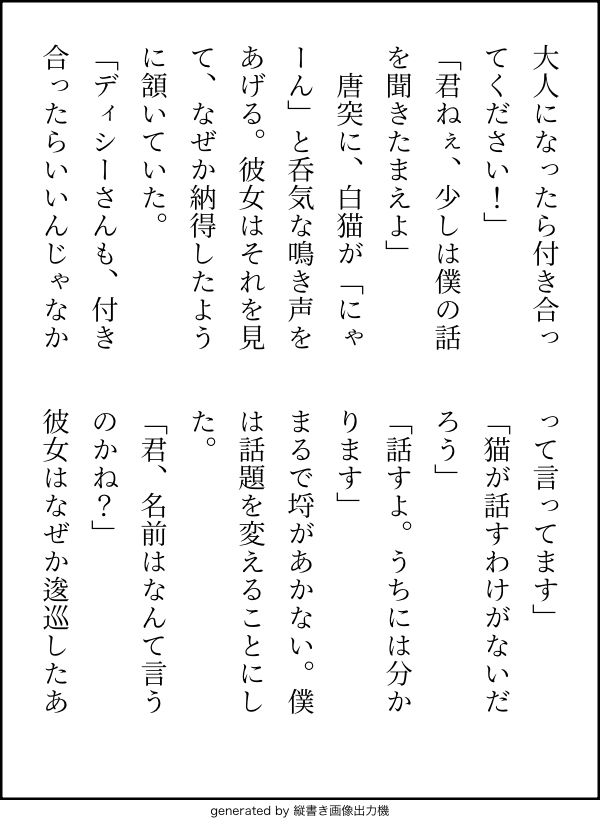 大人になったら付き合っ
てください！」
「君ねぇ、少しは僕の話
を聞きたまえよ」
　唐突に、白猫が「にゃ
ーん」と呑気な鳴き声を
あげる。彼女はそれを見
て、なぜか納得したよう
に頷いていた。
「ディシーさんも、付き
合ったらいいんじゃなか
って言ってます」
「猫が話すわけがないだ
ろう」
「話すよ。うちには分か
ります」
まるで埒があかない。僕
は話題を変えることにし
た。
「君、名前はなんて言う
のかね？」
彼女はなぜか逡巡したあ
generated by 縦書き画像出力機